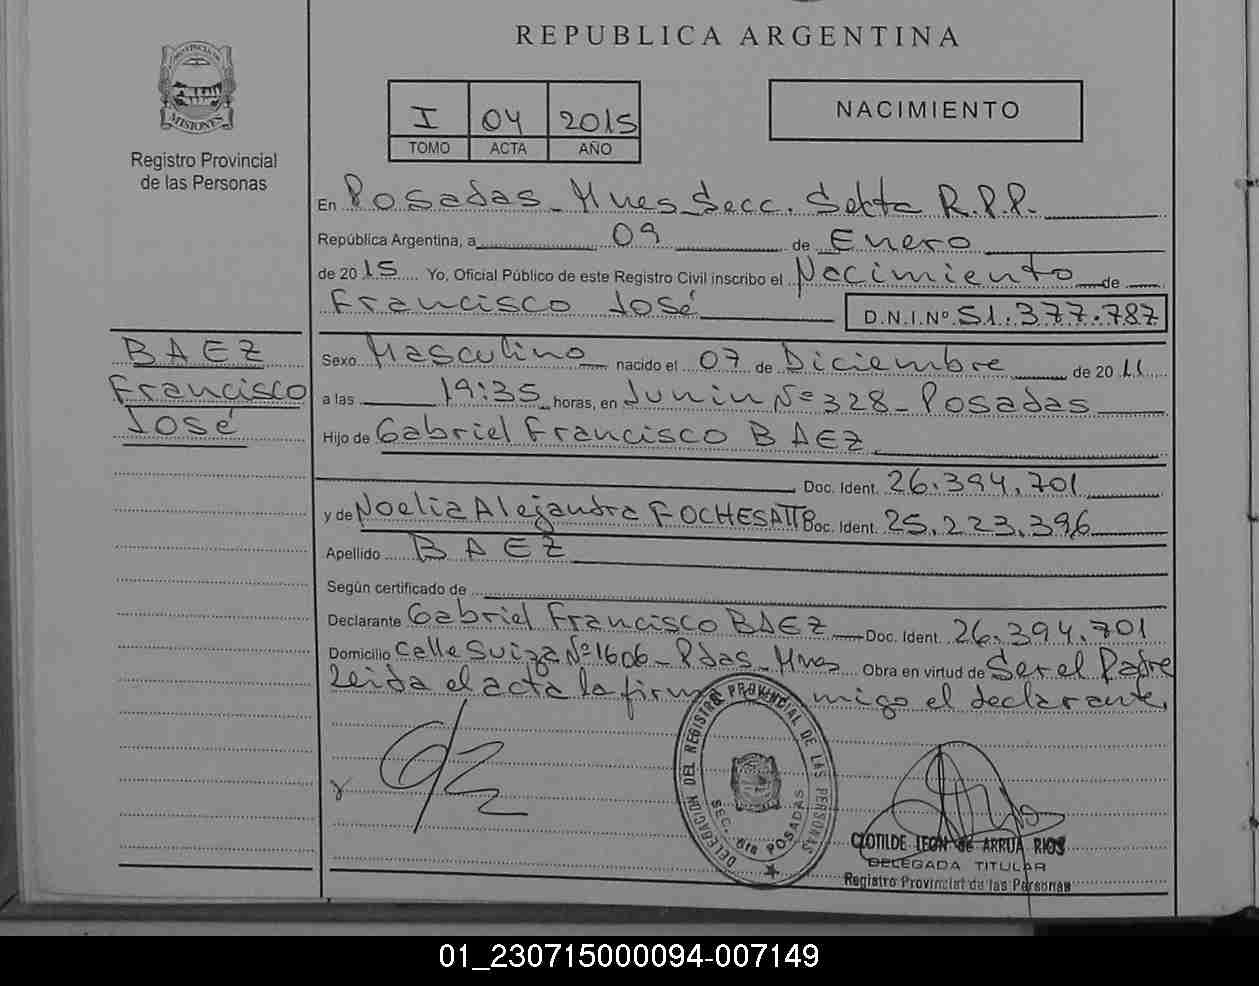 REPUBLICA ARGENTINA
PROVINCIA DE
MISIONES
Registro Provincial
de las Personas
I 04 2015
TOMO ACTA AÑO
NACIMIENTO
En Posadas Mnes Secc. Sexta R.P.P.
República Argentina, a 09 de Enero
de 2015 Yo, Oficial Público de este Registro Civil inscribo el Nacimiento de
Francisco José D.N.I.Nº 51.377.787
BAEZ
Francisco
José
Sexo Masculino nacido el 07 de Diciembre de 2011
a las 19:35 horas, en Junin Nº 328 - Posadas
Hijo de Gabriel Francisco BAEZ
Doc. Ident. 26.394.701
y de Noelia Alejandra FOCHESATTO Doc. Ident. 25.223.396
Apellido BAEZ
Según certificado de
Declarante Gabriel Francisco BAEZ Doc. Ident. 26.394.701
Domicilio Calle Suiza Nº 1606 - Pdas - Mnes Obra en virtud de Ser el Padre
Leida el acta la firma migo el declarante.
DELEGACION DEL REGISTRO PROVINCIAL DE LAS PERSONAS
SEC. 6ta POSADAS
CLOTILDE LEON de ARRUA RIOS
DELEGADA TITULAR
Registro Provincial de las Personas
01_230715000094-007149